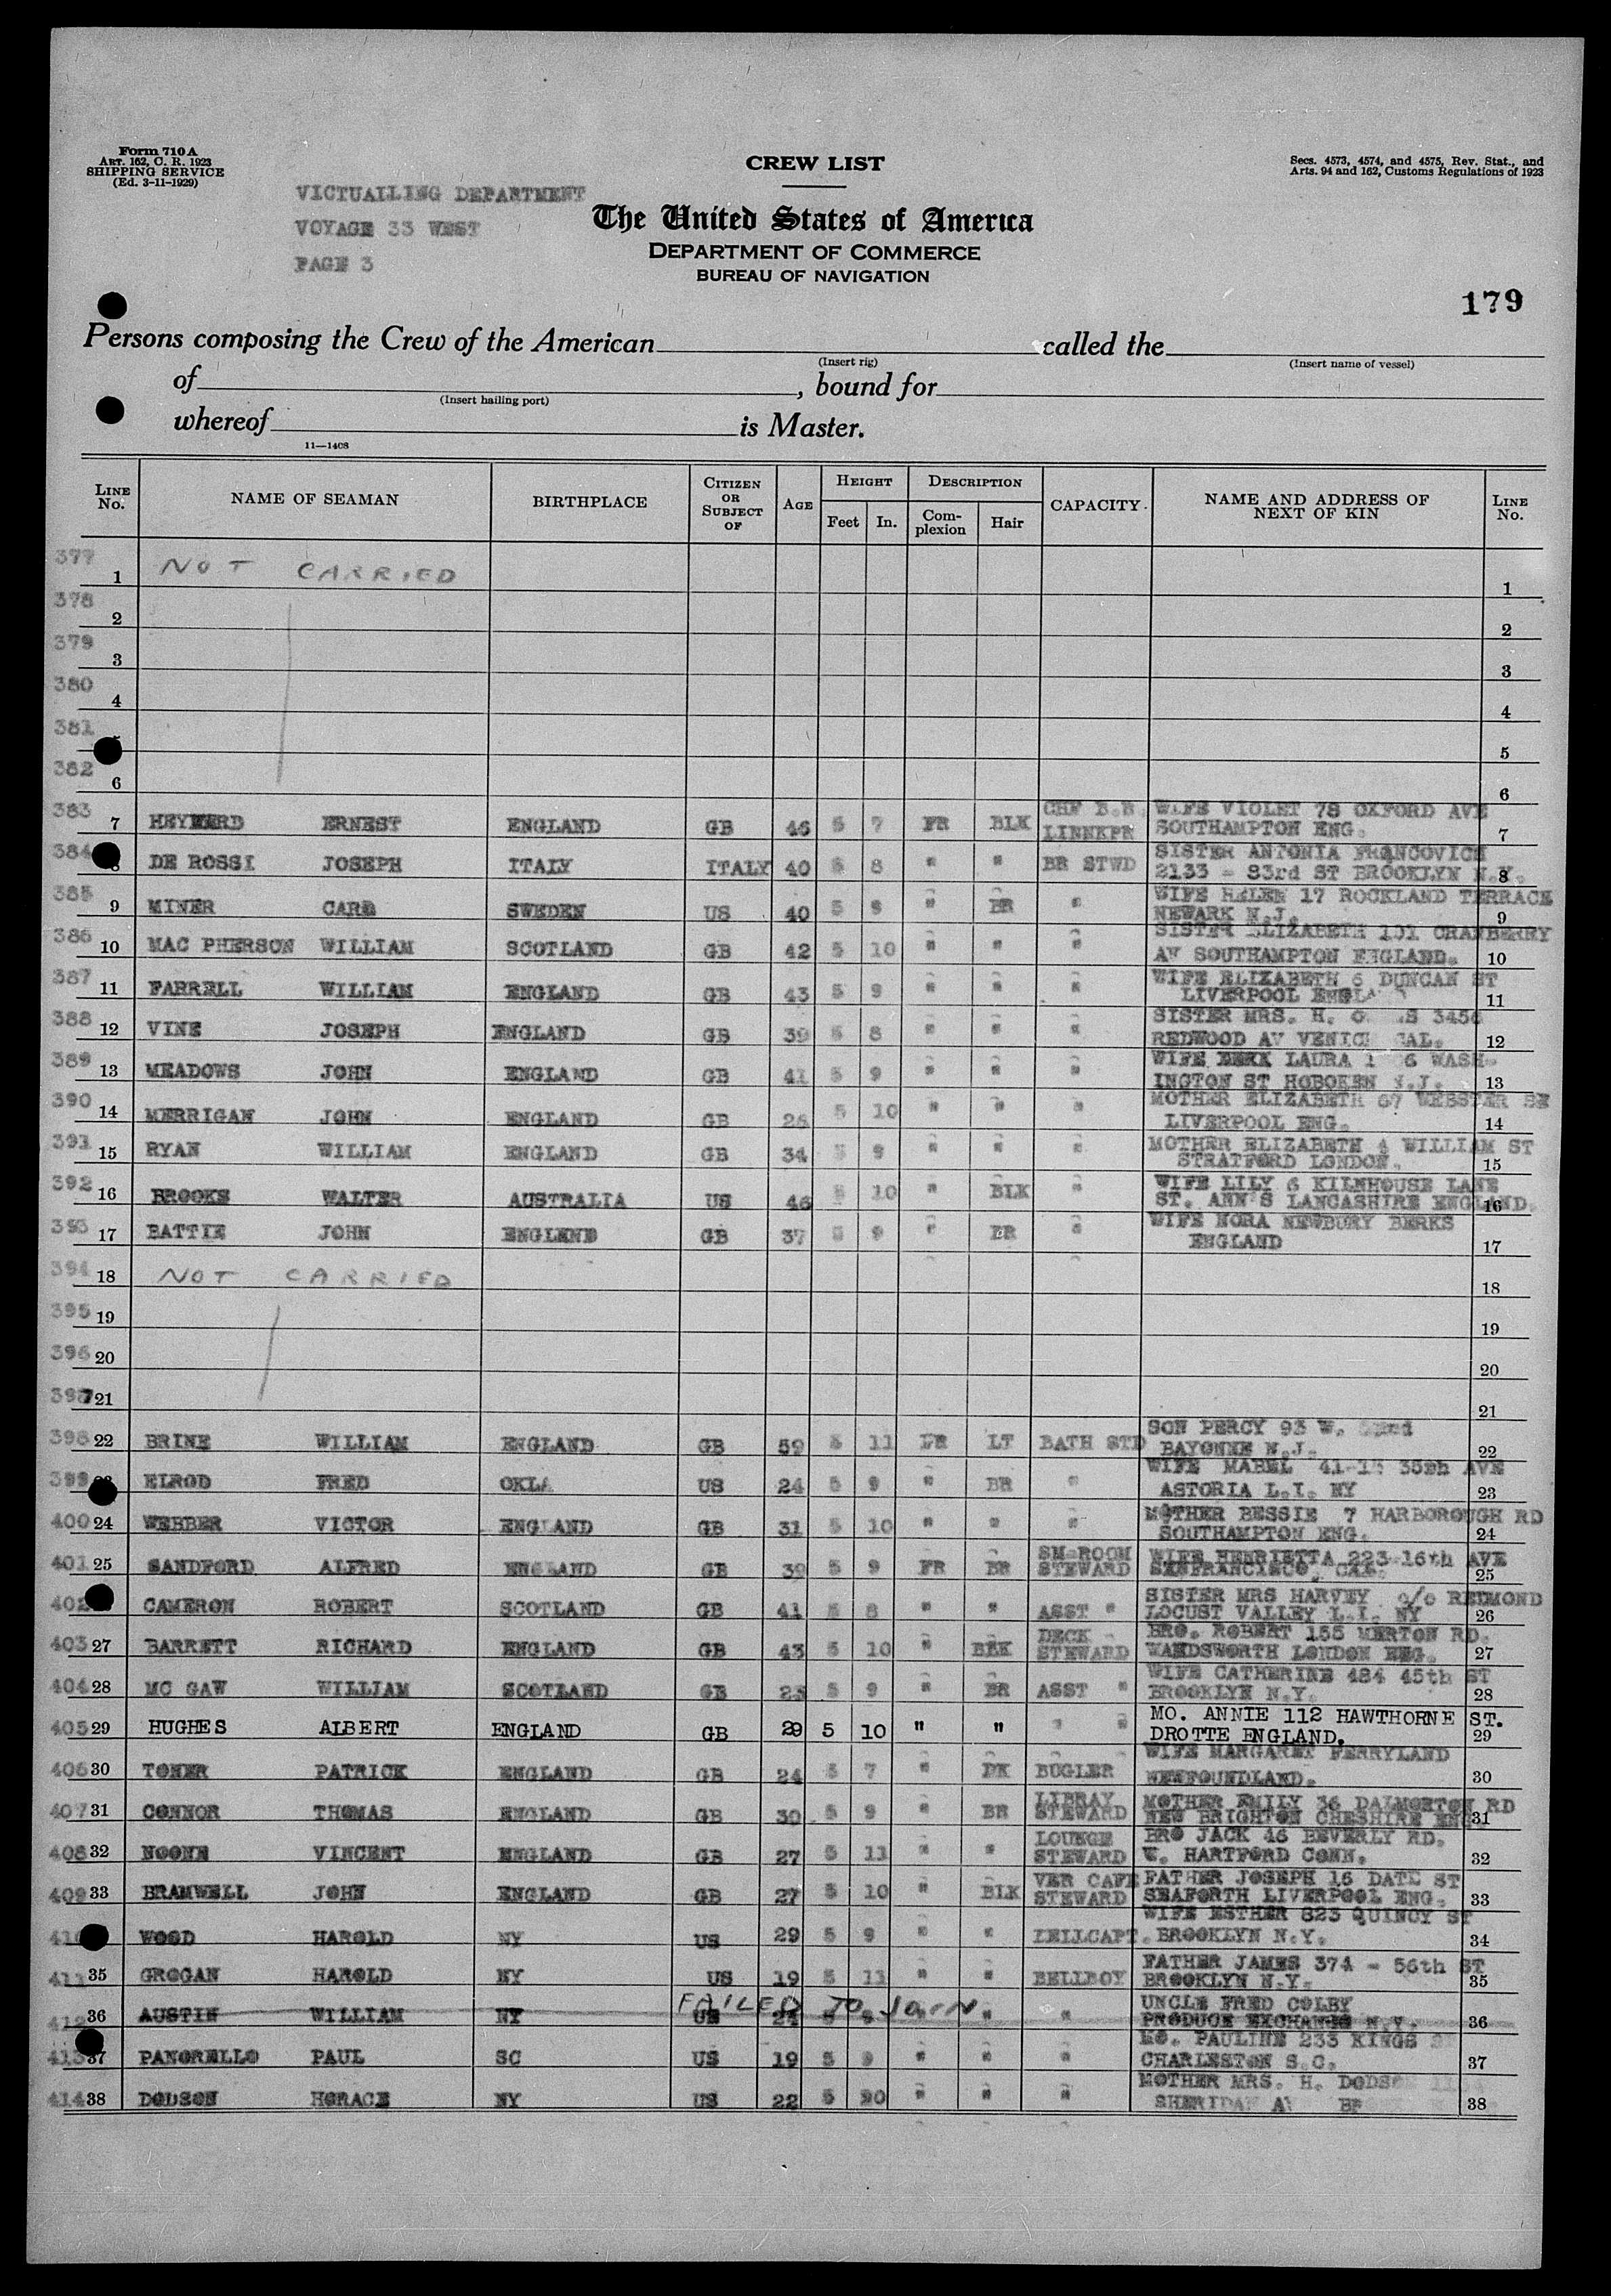 Form 710 A
ART. 162, C. R. 1923
SHIPPING SERVICE
(Ed. 3-11-1929)
VICTUALLING DEPARTMENT
VOYAGE 33 WEST
PAGE 3
CREW LIST
The United States of America
DEPARTMENT OF COMMERCE
BUREAU OF NAVIGATION
Secs. 4573, 4574, and 4575, Rev. Stat., and
Arts. 94 and 162, Customs Regulations of 1923
179
Persons composing the Crew of the American called the
(Insert rig) (Insert name of vessel)
of , bound for
(Insert hailing port)
whereof is Master.
11—1408
LINE No. NAME OF SEAMAN BIRTHPLACE CITIZEN OR SUBJECT OF AGE HEIGHT Feet In. DESCRIPTION Complexion Hair CAPACITY. NAME AND ADDRESS OF NEXT OF KIN LINE No.
377 1 NOT CARRIED 1
378 2 2
379 3 3
380 4 4
381 5
382 6 6
383 7 HEYWERD ERNEST ENGLAND GB 46 5 7 FR BLK CHF B.R. LINNKPR WIFE VIOLET 78 OXFORD AVE SOUTHAMPTON ENG. 7
384 8 DE ROSSI JOSEPH ITALY ITALY 40 5 8 " " BR STWD SISTER ANTONIA FRANCOVICH 2133 - 83rd ST BROOKLYN N.Y. 8
385 9 MINER CARL SWEDEN US 40 5 9 " BR " WIFE HELEN 17 ROCKLAND TERRACE NEWARK N.J. 9
386 10 MAC PHERSON WILLIAM SCOTLAND GB 42 5 10 " " " SISTER ELIZABETH 101 CRANBERRY AV SOUTHAMPTON ENGLAND. 10
387 11 FARRELL WILLIAM ENGLAND GB 43 5 9 " " " WIFE ELIZABETH 6 DUNCAN ST LIVERPOOL 11
388 12 VINE JOSEPH ENGLAND GB 39 5 8 " " " SISTER MRS. H. 3456 REDWOOD AV CAL. 12
389 13 MEADOWS JOHN ENGLAND GB 41 5 9 " " " WIFE LAURA WASHINGTON ST HOBOKEN N.J. 13
390 14 MERRIGAN JOHN ENGLAND GB 28 5 10 " " " MOTHER ELIZABETH 67 WEBSTER ST LIVERPOOL ENG. 14
391 15 RYAN WILLIAM ENGLAND GB 34 5 9 " " " MOTHER ELIZABETH 4 WILLIAM ST STRATFORD LONDON. 15
392 16 BROOKS WALTER AUSTRALIA US 46 5 10 " BLK " WIFE LILY 6 KILNHOUSE LANE ST. ANN'S LANCASHIRE ENGLAND. 16
393 17 BATTIE JOHN ENGLEND GB 37 5 9 " BR " WIFE NORA NEWBURY BERKS ENGLAND 17
394 18 NOT CARRIED 18
395 19 19
396 20 20
397 21 21
398 22 BRINE WILLIAM ENGLAND GB 59 5 11 FR LT BATH STD SON PERCY 93 W. BAYONNE N.J. 22
399 ELROD FRED OKLA US 24 5 9 " BR " WIFE MABEL 35th AVE ASTORIA L.I. NY 23
400 24 WEBBER VICTOR ENGLAND GB 31 5 10 " " " MOTHER BESSIE 7 HARBOROUGH RD SOUTHAMPTON ENG. 24
401 25 SANDFORD ALFRED ENGLAND GB 39 5 9 FR BR SM-ROOM STEWARD WIFE HENRIETTA 223-16th AVE SANFRANCISCO, CAL. 25
402 CAMERON ROBERT SCOTLAND GB 41 5 8 " " ASST " SISTER MRS HARVEY c/o REDMOND LOCUST VALLEY L.I. NY 26
403 27 BARRETT RICHARD ENGLAND GB 43 5 10 " BLK DECK STEWARD BRO. ROBERT 155 MERTON RD. WANDSWORTH LONDON ENG. 27
404 28 MC GAW WILLIAM SCOTLAND GB 23 5 9 " BR ASST " WIFE CATHERINE 484 45th ST BROOKLYN N.Y. 28
405 29 HUGHES ALBERT ENGLAND GB 29 5 10 " " " " MO. ANNIE 112 HAWTHORNE ST. DROTTE ENGLAND. 29
406 30 TONER PATRICK ENGLAND GB 24 5 7 " DK BUGLER WIFE MARGARET FERRYLAND NEWFOUNDLAND. 30
407 31 CONNOR THOMAS ENGLAND GB 30 5 9 " BR LIBRAY STEWARD MOTHER EMILY 36 DALMORTON RD NEW BRIGHTON CHESHIRE ENG 31
408 32 NOONE VINCENT ENGLAND GB 27 5 11 " " LOUNGE STEWARD BRO JACK 46 BEVERLY RD. W. HARTFORD CONN. 32
409 33 BRAMWELL JOHN ENGLAND GB 27 5 10 " BLK VER CAFE STEWARD FATHER JOSEPH 16 DATE ST SEAFORTH LIVERPOOL ENG. 33
410 WOOD HAROLD NY US 29 5 9 " " BELLCAPT. WIFE ESTHER 823 QUINCY ST BROOKLYN N.Y. 34
411 35 GROGAN HAROLD NY US 19 5 11 " " BELLBOY FATHER JAMES 374 - 56th ST BROOKLYN N.Y. 35
FAILED TO JOIN
412 36 AUSTIN WILLIAM NY US 24 5 9 " " " UNCLE FRED COLBY PRODUCE EXCHANGE N.Y. 36
413 37 PANORELLO PAUL SC US 19 5 9 " " " MO. PAULINE 233 KINGS ST CHARLESTON S.C. 37
414 38 DODSON HORACE NY US 22 5 " " " MOTHER MRS. H. DODSON 38